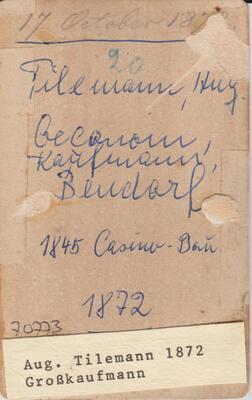 17 October 1872.
20
Tilemann, Aug.
Oeconom,
Kaufmann,
Bendorf
1845 Casino-Bau
1872
70773
Aug. Tilemann 1872
Großkaufmann